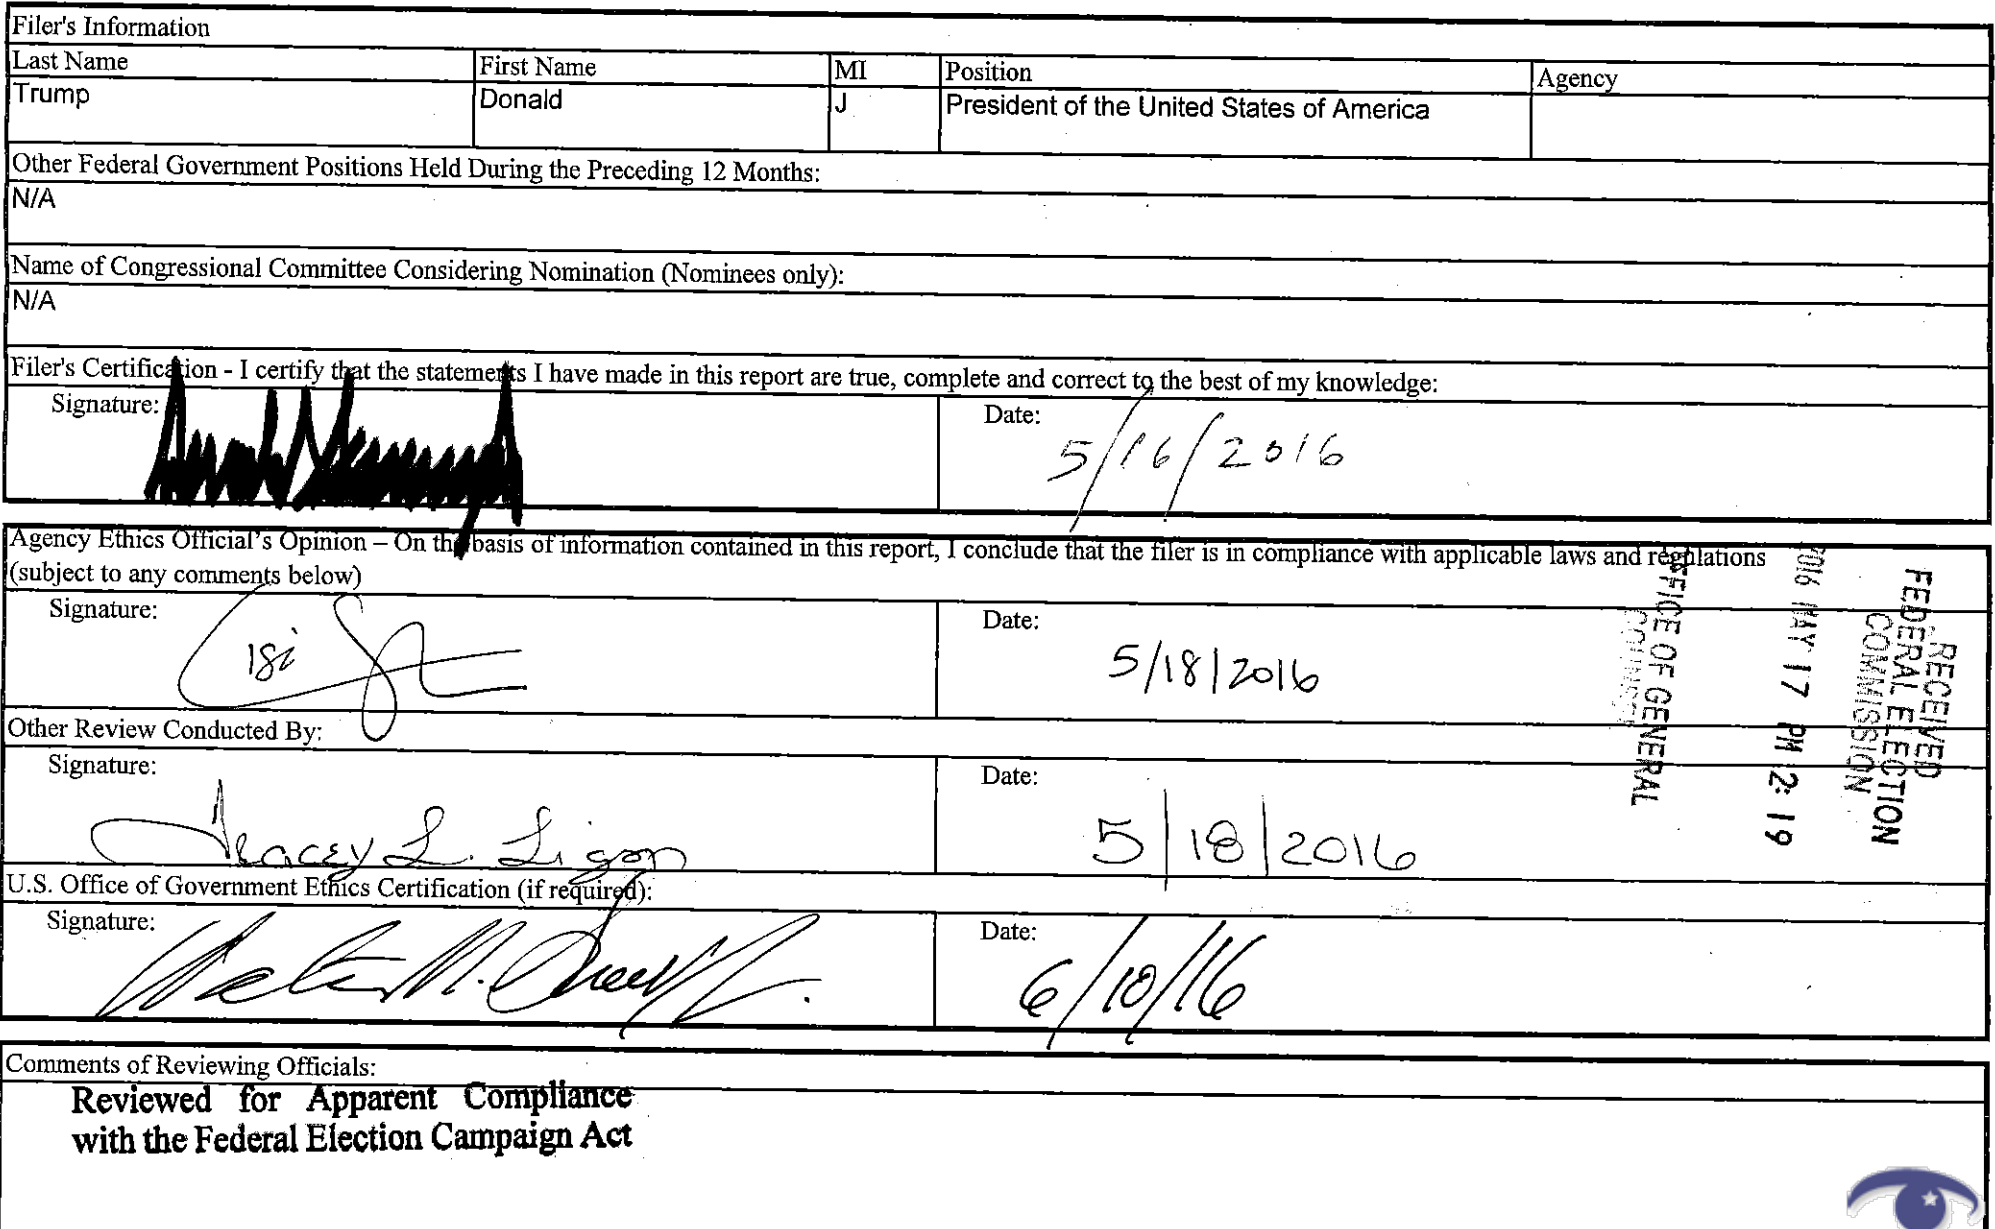 Filer's Information
Last Name First Name MI Position Agency
Trump Donald J President of the United States of America
Other Federal Government Positions Held During the Preceding 12 Months:
N/A
Name of Congressional Committee Considering Nomination (Nominees only):
N/A
Filer's Certification - I certify that the statements I have made in this report are true, complete and correct to the best of my knowledge:
Signature: Date: 5/16/2016
Agency Ethics Official's Opinion – On the basis of information contained in this report, I conclude that the filer is in compliance with applicable laws and regulations
(subject to any comments below)
Signature: Date: 5/18/2016
Other Review Conducted By:
Signature: Tracey L. Ligon Date: 5/18/2016
U.S. Office of Government Ethics Certification (if required):
Signature: Date: 6/10/16
RECEIVED
FEDERAL ELECTION
COMMISSION
2016 MAY 17 PM 2: 19
OFFICE OF GENERAL
COUNSEL
Comments of Reviewing Officials:
Reviewed for Apparent Compliance
with the Federal Election Campaign Act